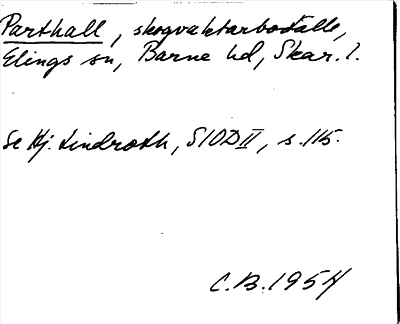 Parthall, skogvaktarboställe,
Elings sn, Barne hd, Skar. l.
Se Hj. Lindroth, SIOD II, s. 115.
C.B. 1954